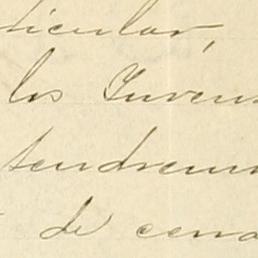 ticular,
los Juven
tendrem
de cena